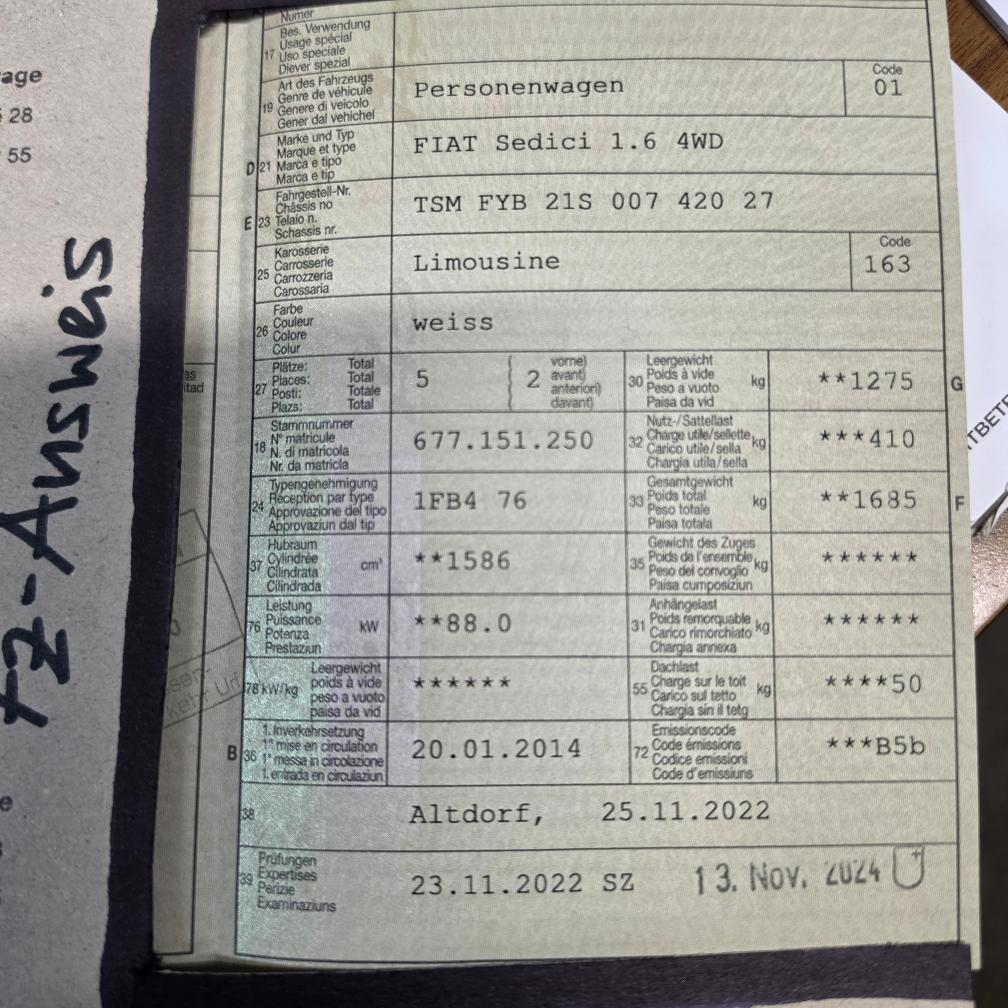 age
28
55
FZ-Ausweis
Numer
17 Bes. Verwendung
Usage spécial
Uso speciale
Diever spezial
19 Art des Fahrzeugs
Genre de véhicule
Genere di veicolo
Gener dal vehichel
Personenwagen
Code
01
D 21 Marke und Typ
Marque et type
Marca e tipo
Marca e tip
FIAT Sedici 1.6 4WD
E 23 Fahrgestell-Nr.
Châssis no
Telaio n.
Schassis nr.
TSM FYB 21S 007 420 27
25 Karosserie
Carrosserie
Carrozzeria
Carossaria
Limousine
Code
163
26 Farbe
Couleur
Colore
Colur
weiss
27 Plätze: Total
Places: Total
Posti: Totale
Plazs: Total
5
( 2 vorne)
avant)
anteriori)
davant)
30 Leergewicht
Poids à vide
Peso a vuoto
Paisa da vid
kg
**1275
G
18 Stammnummer
N° matricule
N. di matricola
Nr. da matricla
677.151.250
32 Nutz-/Sattellast
Charge utile/sellette
Carico utile/sella
Chargia utila/sella
kg
***410
24 Typengenehmigung
Réception par type
Approvazione del tipo
Approvaziun dal tip
1FB4 76
33 Gesamtgewicht
Poids total
Peso totale
Paisa totala
kg
**1685
F
37 Hubraum
Cylindrée
Cilindrata
Cilindrada
cm³
**1586
35 Gewicht des Zuges
Poids de l'ensemble
Peso del convoglio
Paisa cumposiziun
kg
******
76 Leistung
Puissance
Potenza
Prestaziun
kW
**88.0
31 Anhängelast
Poids remorquable
Carico rimorchiato
Chargia annexa
kg
******
78 kW/kg Leergewicht
poids à vide
peso a vuoto
paisa da vid
******
55 Dachlast
Charge sur le toit
Carico sul tetto
Chargia sin il tetg
kg
****50
B 36 1. Inverkehrsetzung
1re mise en circulation
1a messa in circolazione
1. entrada en circulaziun
20.01.2014
72 Emissionscode
Code émissions
Codice emissioni
Code d'emissiuns
***B5b
38
Altdorf, 25.11.2022
39 Prüfungen
Expertises
Perizie
Examinaziuns
23.11.2022 SZ
13. Nov. 2024